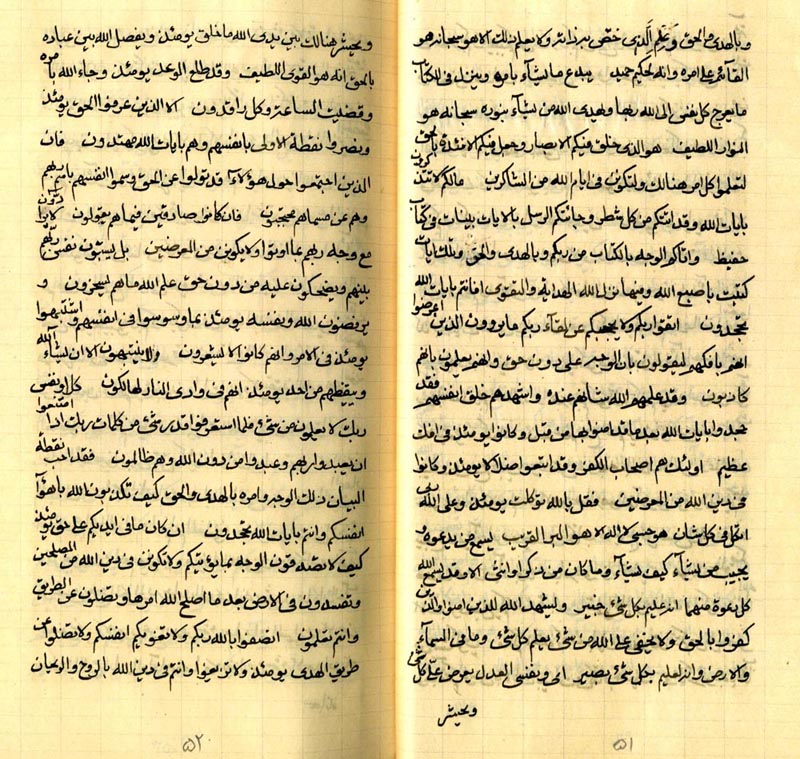 وبالهدى والحق وعلم الذى خفى بين انتم ولا يعلم ذلك الا هو سبحانه هو
القآئم على امره وانه لحكيم حميد يبدع ما يشآء بامره وينزل فى الكتاب
ما يعرج كل نفس الى الله ربها ويهدى الله من يشآء بنوره سبحانه هو
النوار اللطيف هو الذى خلق فيكم الابصار وجعل فيكم الافئدة بالحق
لتعلموا كل امر هنالك ولتكونن فى ايام الله من الشاكرين مالكم لا تتذكرون
بايات الله وقد اتتكم من كل شطر وجائتكم الرسل بالايات بينات فى كتاب
حفيظ واتاكم الوجه بالكتاب من ربكم وبالهدى والحق وتلك ايات
كتبت باصبع الله ومنها نزل الله الهداية والتقوى افانتم بايات الله
تجحدون اتقوا ربكم ولا يحجبكم عن لقآء ربكم ما يروون الذين اعرضوا
انهم بافكهم ليقولون بان الوجه على دون حق وانهم يعلمون بانهم
كاذبون وقد علمهم الله شأنهم عنده واشهدهم خلق انفسهم فقد
جحدوا بايات الله بعد ما قد امنوا بها من قبل وكانوا يومئذ فى افك
عظيم اولئك هم اصحاب الكفر وقد اتبعوا اضلالا يومئذ وكانوا
فى دين الله من المعرضين فقل بالله توكلت يومئذ وعلى الله ربى
اتكل فى كل شان هو حسبى لا اله الا هو البر القريب يسمع من يدعوه و
يجيب من يشآء كيف يشآء وما كان من ذكر او انثى الا وقد يسمع الله
كل دعوة منهما انه عليم بكل شئ خبير وليشهد الله للذين امنوا والذين
كفروا بالحق ولا يخفى على الله من شئ يعلم كل شئ وما فى السمآء
والارض وانه لعليم بكل شئ بصير الى وبنفسى العدل يعرض على كل شئ
ويحشر
۵۱
ويحشر هنالك بين يدى الله ما خلق يومئذ ويفصل الله بين عباده
بالحق انه هو القوى اللطيف وقد طلع الوعد يومئذ وجاء الله بامره
وقضيت الساعة وكل راقدون الا الذين عرفوا الحق يومئذ
ونصروا نقطة الاولى بانفسهم وهم بايات الله مهتدون فان
الذين اجتمعوا حول هؤلاء قد تولوا عن الحق وسموا انفسهم باسم ربهم
وهم عن مسماهم محتجبون فان كانوا صادقين فيما هم يقولون كانوا يردون
مع وجه ربهم بما اوتوا ولا يكونن من المعرضين بل يسبون نفس ربهم
بينهم ويضحكون عليه من دون حق علم الله ما هم ليسخرون و
يرفضون الله ونفسه يومئذ بما وسوسوا فى انفسهم واشتبهوا
يومئذ فى الامر وانهم كانوا لا يشعرون ولا ينتبهون الا ان يشآء الله
ويقظهم من احد يومئذ انهم فى وادى النار لهالكون كل اولى
ربك لا يعلمون من شئ فلما استعرفوا قدر شئ من كلمات ربك اذا امتنعوا
ان يعبدوا ربهم وعبدوا من دون الله وهم ظالمون فقد احب نقطة
البيان ذلك الوجه وامره بالهدى والحق كيف تكذبون الله باهوآء
انفسكم وانتم بايات الله تجحدون ان كان ما فى ايديكم على حق يومئذ
كيف لا تصدقون الوجه بما يؤتيكم ولا تكونن فى دين الله من المصلحين
وتفسدون فى الارض بعد ما اصلح الله امرها وتضلون عن الطريق
وانتم تعلمون انصفوا بالله ربكم ولا تغويكم انفسكم ولا تضلوا عن
طريق الهدى يومئذ ولا تريعوا وانتم فى دين الله بالروح والريحان
۵۲